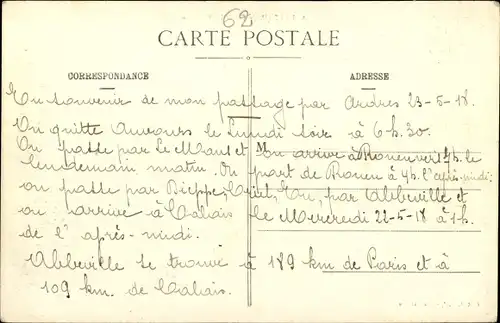 62
CARTE POSTALE
CORRESPONDANCE
ADRESSE
En souvenir de mon passage par Ardres 23-5-18.
On quitte Auvours le Lundi soir à 6 h. 30.
On passe par Le Mans et M on arrive à Rouen vers 4 h. le
lendemain matin. On part de Rouen à 4 h. l'après-midi;
on passe par Dieppe, Eu, par Abbeville et
on arrive à Calais le Mercredi 22-5-18 à 1 h.
de l'après-midi.
Abbeville se trouve à 189 km de Paris et à
109 km. de Calais.